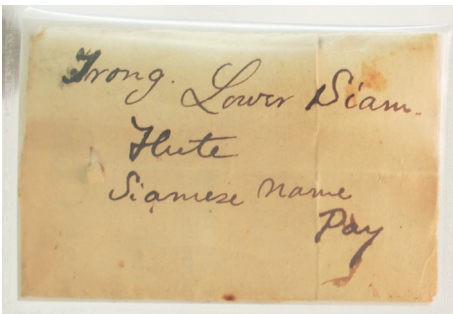 Trong. Lower Siam.
Flute
Siamese name
Pay